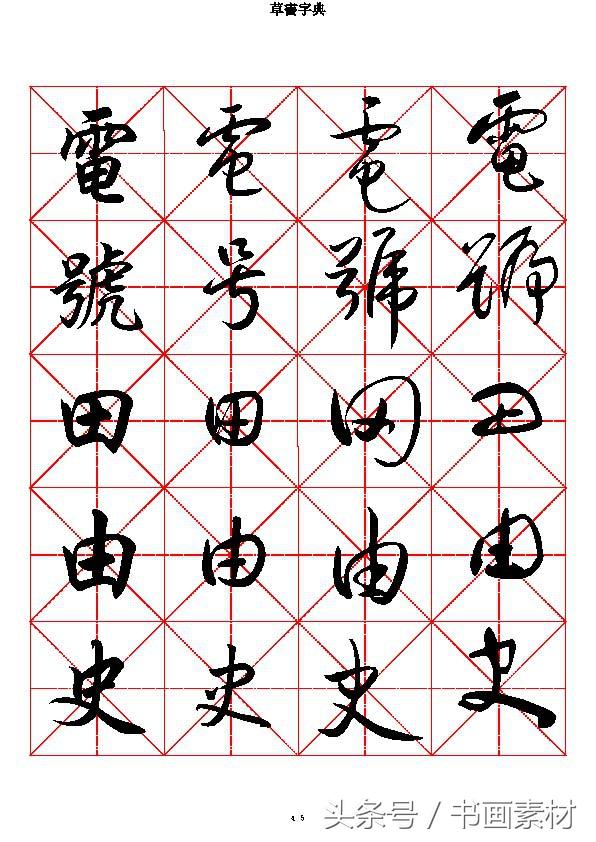 草書字典
電 電 電 電
號 号 號 號
田 田 田 田
由 由 由 由
史 史 史 史
4 5
头条号 / 书画素材